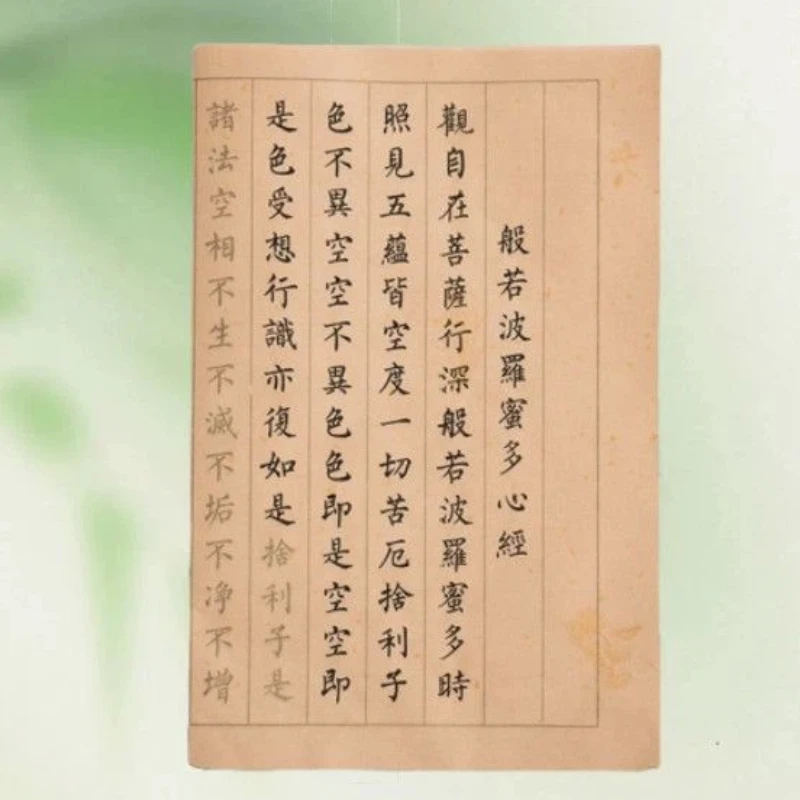 般若波羅蜜多心經
觀自在菩薩行深般若波羅蜜多時
照見五蘊皆空度一切苦厄捨利子
色不異空空不異色色即是空空即
是色受想行識亦復如是捨利子是
諸法空相不生不滅不垢不净不增